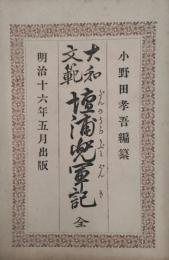 小野田孝吾編纂
大和文範
壇浦兜軍記 全
明治十六年五月出版